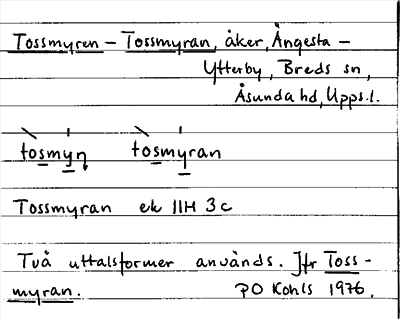 Tossmyren – Tossmyran, åker, Ängesta –
Ytterby, Breds sn,
Åsunda hd, Upps. l.
tosmyn tosmyran
Tossmyran ek 11H 3c
Två uttalsformer används. Jfr Toss-
myran. PO Kohls 1976.